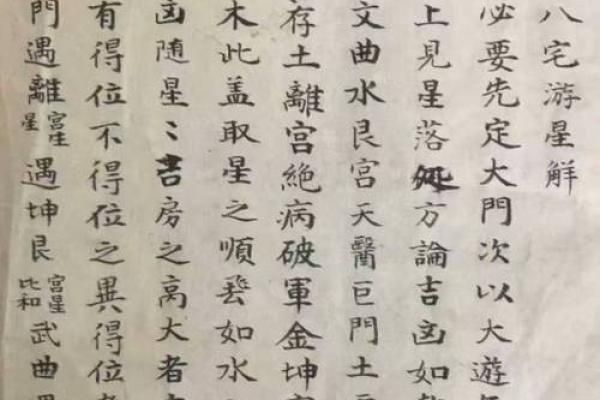 八宅游星解
必要先定大門次以大遊
上見星落处方論吉凶如
文曲水艮宮天醫巨門土
存土離宮絶病破軍金坤
木此盖取星之順飛如水
凶随星〻吉房之高大者
有得位不得位之異得位
門遇離宮生星遇坤艮宮星比和武曲